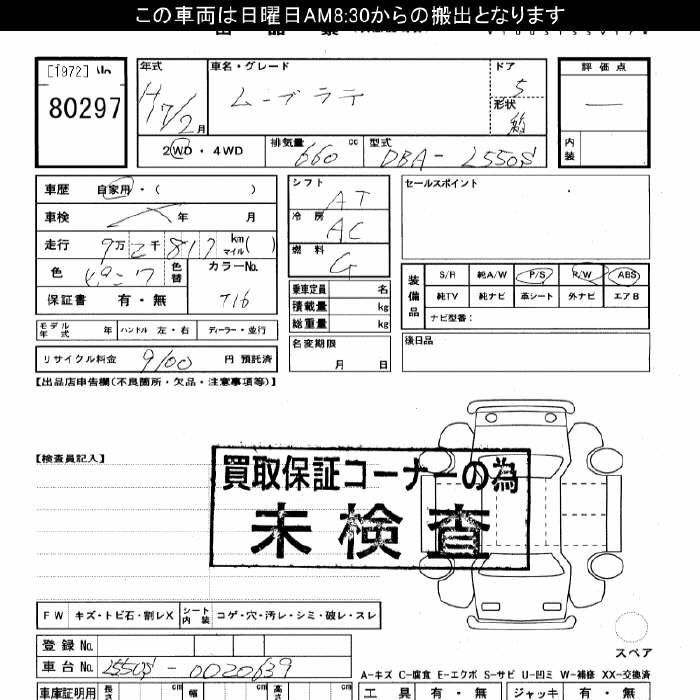 この車両は日曜日AM8:30からの搬出となります
[1972]
80297
年式
H17/2月
車名・グレード
ムーブラテ
ドア
5
形状
評価点
—
内装
2WD・4WD
排気量 660 cc
型式 DBA-L550S
車歴 自家用・( )
車検 年 月
走行 9万2千817 km マイル( )
色 ピンク 色替
カラーNo. T16
保証書 有・無
シフト AT
冷房 AC
燃料 G
乗車定員 名
積載量 kg
総重量 kg
セールスポイント
装備品
S/R 純A/W P/S R/W ABS
純TV 純ナビ 革シート 外ナビ エアB
ナビ型番:
モデル年式 年 ハンドル 左・右 ディーラー・並行
名変期限 月 日
後日品
リサイクル料金 9100 円 預託済
【出品店申告欄(不良箇所・欠品・注意事項等)】
【検査員記入】
買取保証コーナーの為
未検査
FW キズ・トビ石・割レX シート内装 コゲ・穴・汚レ・シミ・破レ・スレ
スペア
登録No.
車台No. L550S-0020639
A-キズ C-腐食 E-エクボ S-サビ U-凹ミ W-補修 XX-交換済
車庫証明用 長さ cm 幅 cm 高さ cm
工具 有・無 ジャッキ 有・無